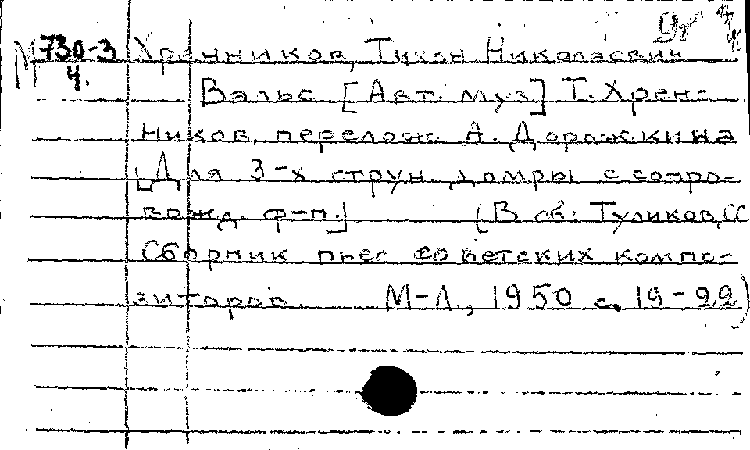 М 730-3 Хренников, Тихон Николаевич
4.
Вальс [Авт. муз] Т. Хрен-
ников, перелож. А. Дорожкина
[Для 3-х струн. домры с сопро-
вожд. ф-п.] (В сб: Туликов, СС
Сборник пьес советских компо-
зиторов М-Л, 1950 с. 19-22)